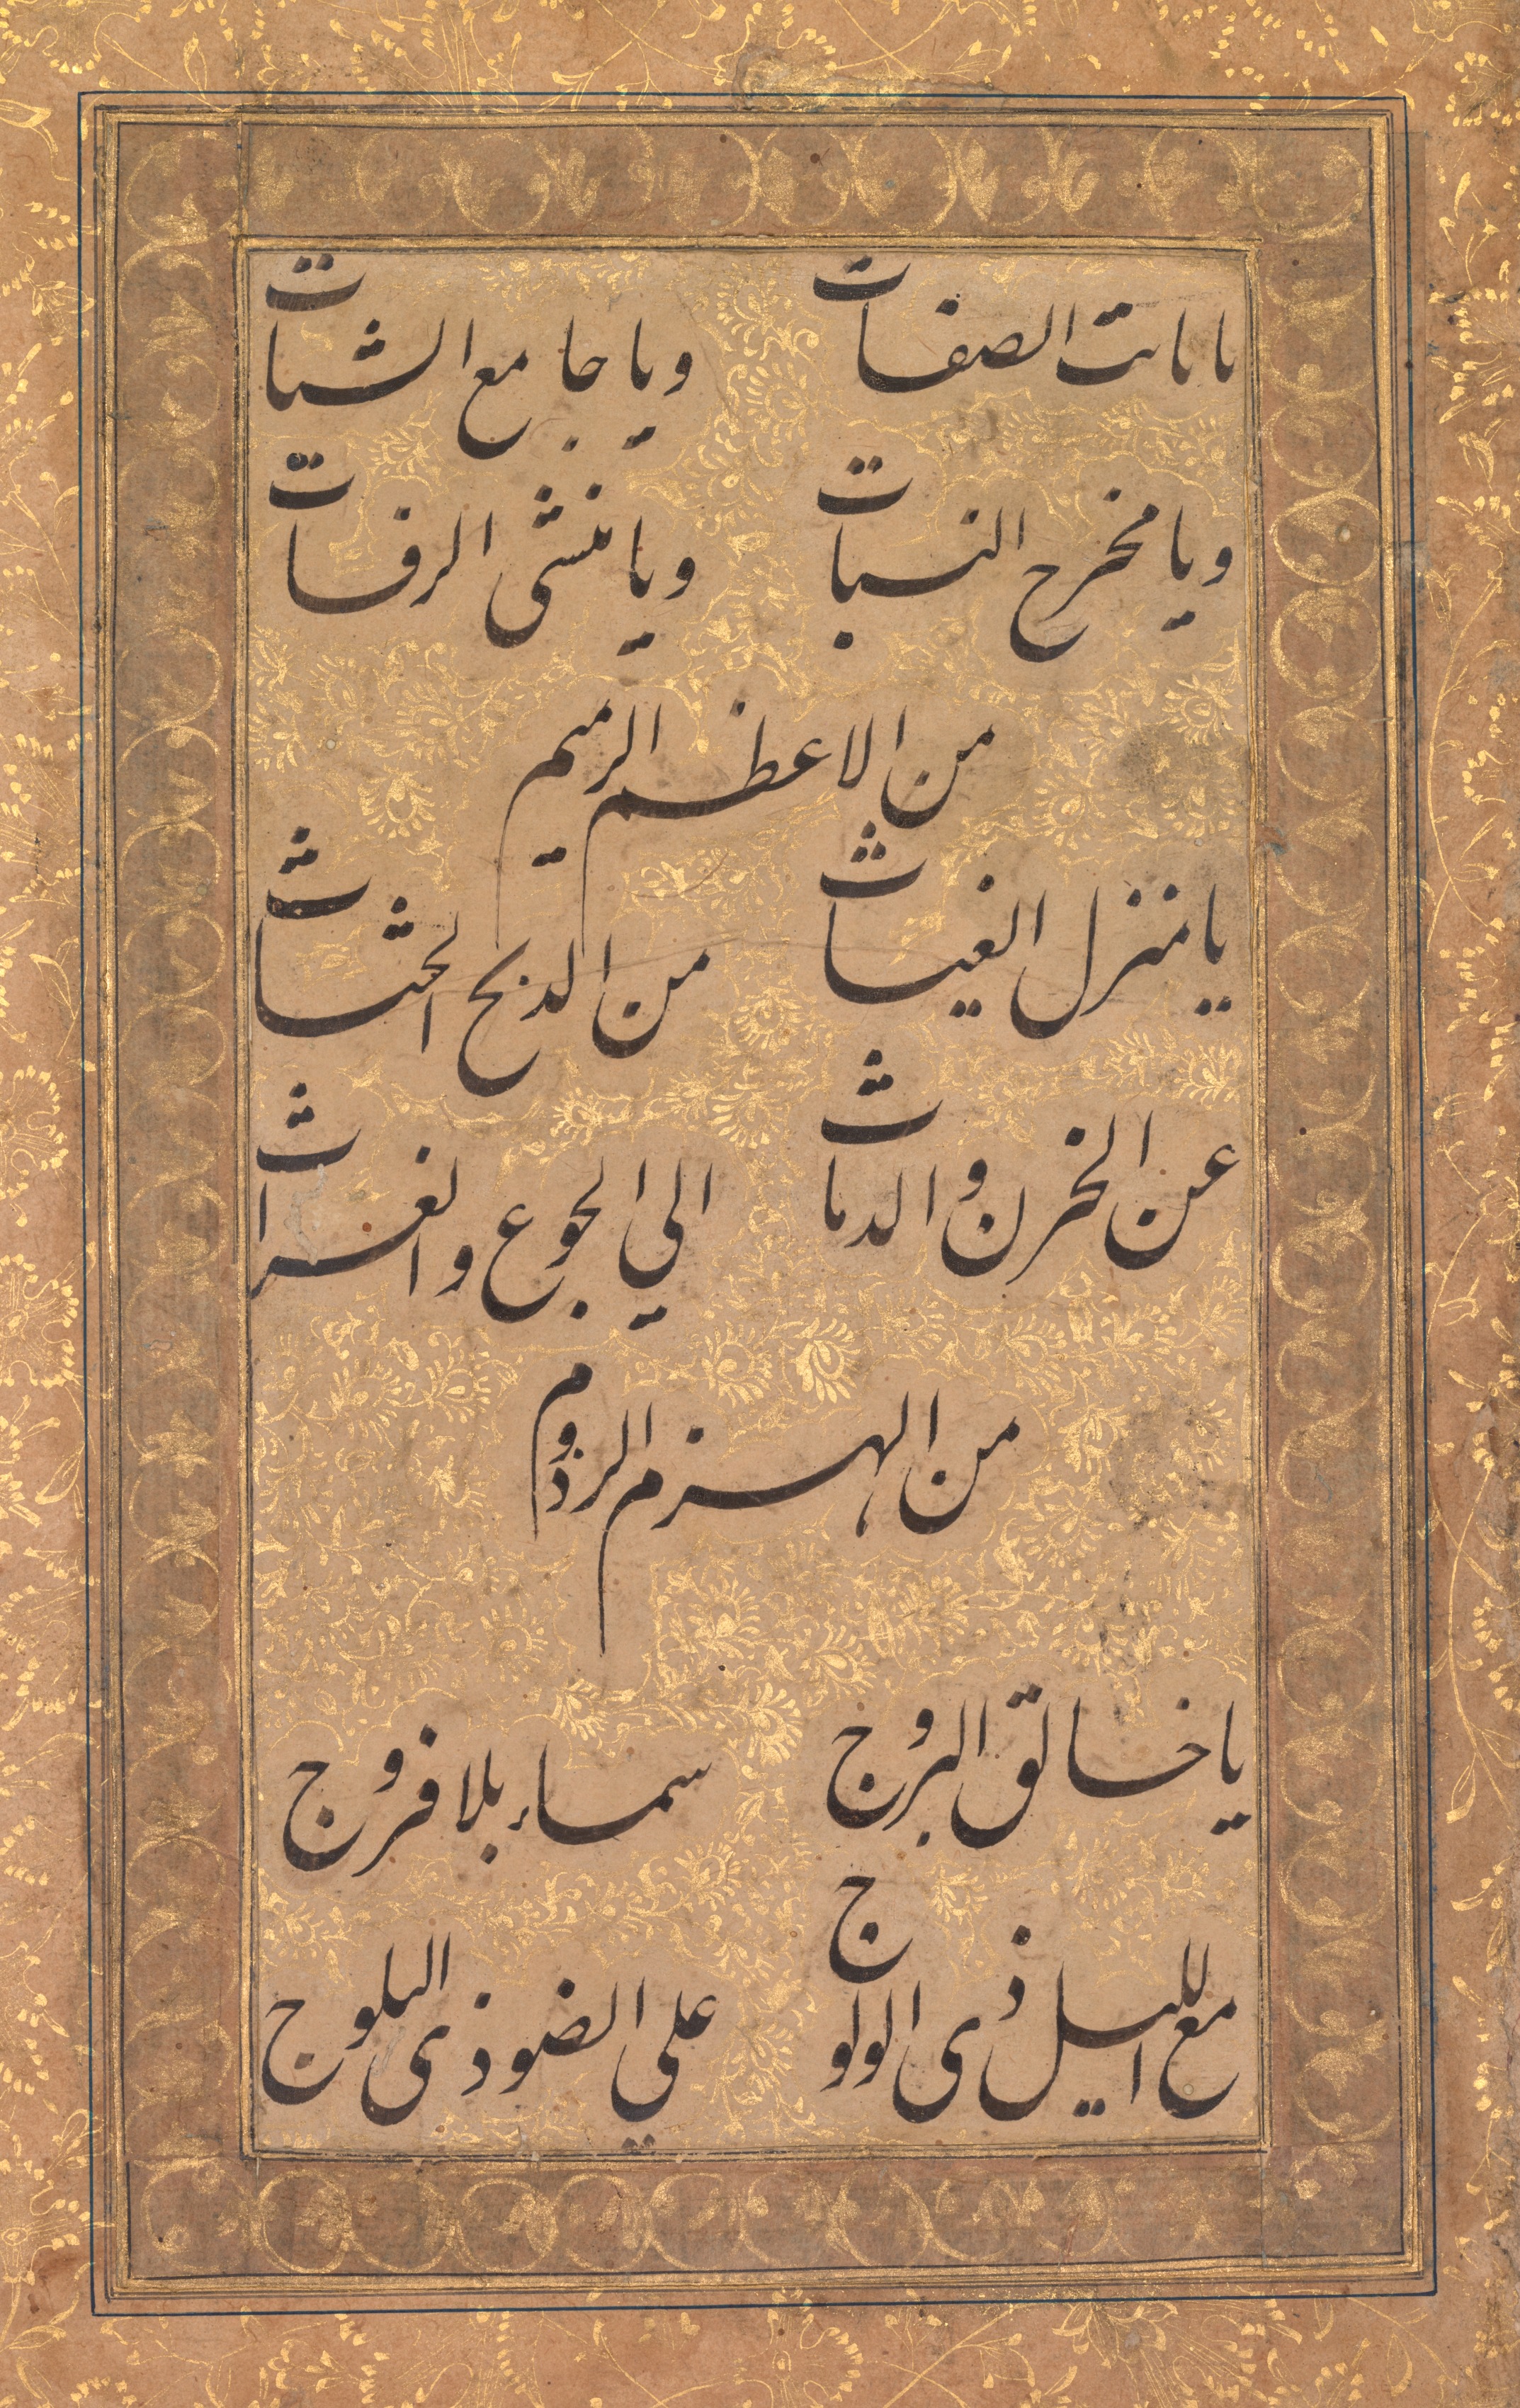 یا باتت الصفات ویا جامع الشتات
ویا مخرج النبات ویا منشی الرفات
من الاعظم الرمیم
یا منزل الغیاث من الدبح الحثاث
عن الخرن والدماث الی الجوع والغراث
من الهزم الرذوم
یا خالق البروج سماء بلا فروج
مع اللیل ذی الولوج علی الضوذی البلوج